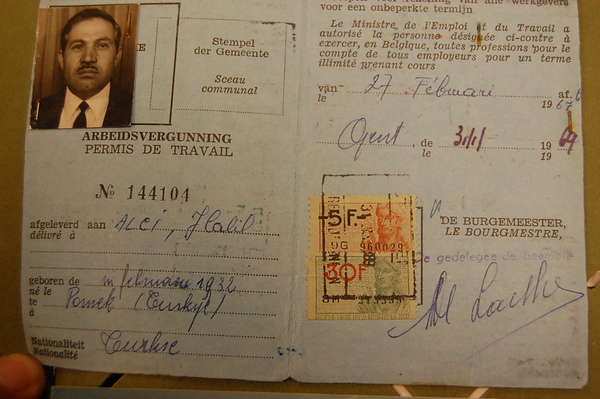 Stempel
der Gemeente
Sceau
communal
ARBEIDSVERGUNNING
PERMIS DE TRAVAIL
№ 144104
afgeleverd aan ALCI, Halil
délivré à
geboren de in februari 1932
né le
te
à
Nationaliteit
Nationalité Turkse
voor een onbeperkte termijn
Le Ministre, de l'Emploi et du Travail a
autorisé la personne désignée ci-contre à
exercer, en Belgique, toutes professions pour le
compte de tous employeurs pour un terme
illimité prenant cours
van 27 Februari af.
le 1967
Gent, de 31/1/ 1969
le 19
5F.
9G 960029
30F
DE BURGEMEESTER,
LE BOURGMESTRE,